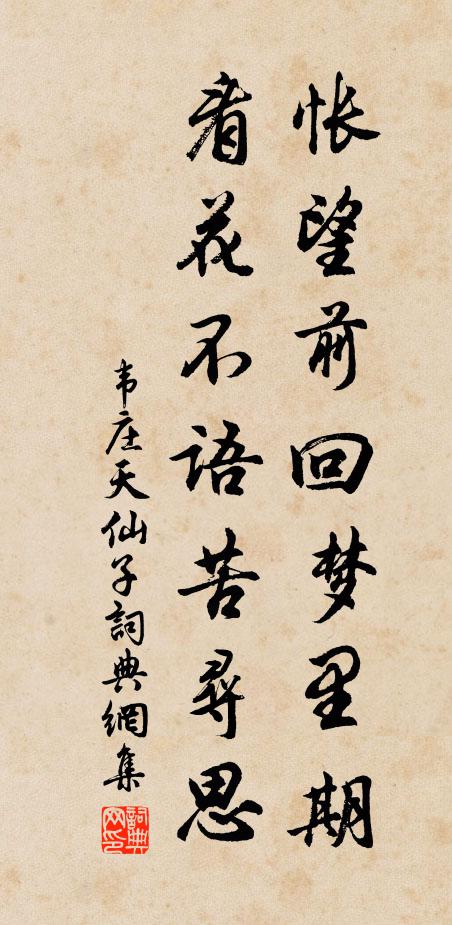 怅望前回梦里期
看花不语苦寻思
韦庄天仙子詞典網集
詞典网印